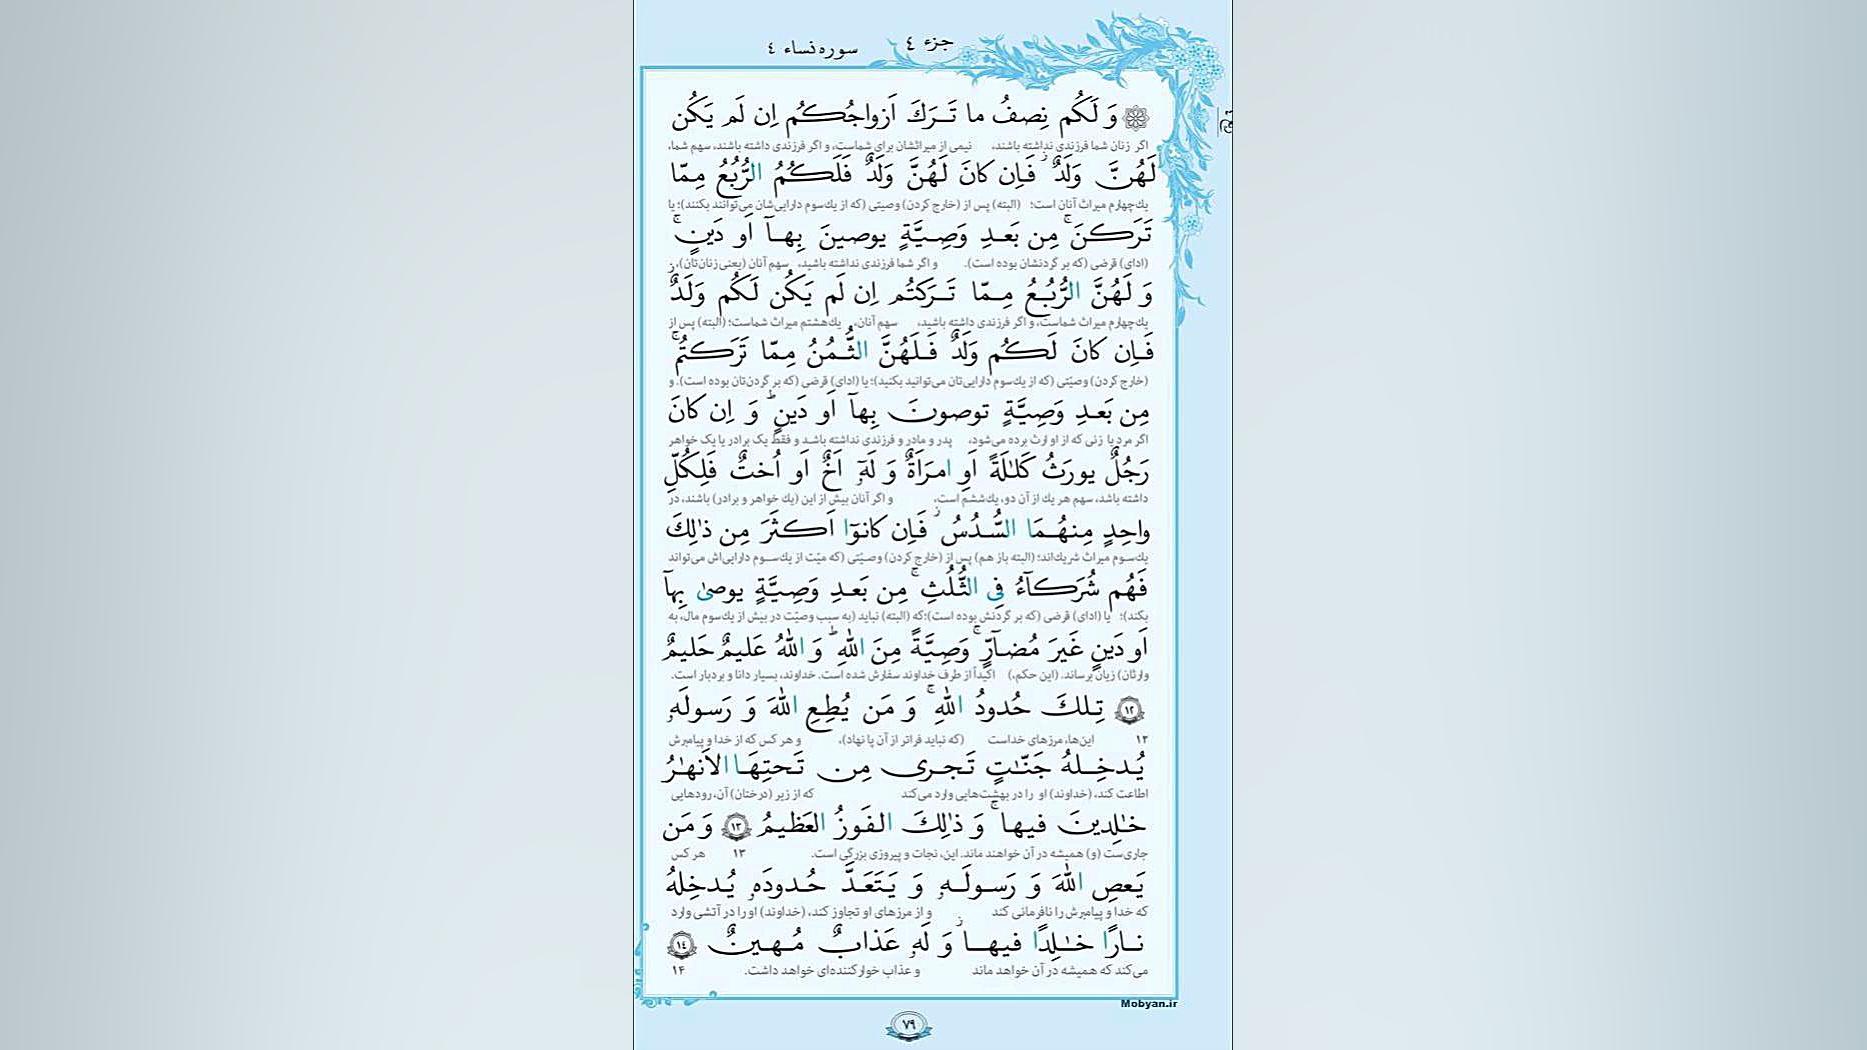 جزء ٤
سوره نساء ٤
وَ لَكُم نِصفُ ما تَـرَكَ اَزواجُكُم اِن لَم يَكُن
اگر زنان شما فرزندی نداشته باشند، نیمی از میراثشان برای شماست، و اگر فرزندی داشته باشند، سهم شما،
لَهُنَّ وَلَدٌ ۚ فَاِن كانَ لَهُنَّ وَلَدٌ فَلَكُمُ الرُّبُعُ مِمّا
یک‌چهارم میراث آنان است؛ (البته) پس از (خارج کردن) وصیتی (که از یک‌سوم دارایی‌شان می‌توانند بکنند)؛ یا
تَرَكنَ ۚ مِن بَعـدِ وَصِيَّةٍ يوصينَ بِهـآ اَو دَينٍ ۚ
(ادای) قرضی (که بر گردنشان بوده است). و اگر شما فرزندی نداشته باشید، سهم آنان (یعنی زنان‌تان)،
وَ لَهُنَّ الرُّبُعُ مِـمّا تَـرَكتُم اِن لَم يَكُن لَكُم وَلَدٌ ۚ
یک‌چهارم میراث شماست، و اگر فرزندی داشته باشید، سهم آنان، یک‌هشتم میراث شماست؛ (البته) پس از
فَاِن كانَ لَكُم وَلَدٌ فَـلَهُنَّ الثُّمُنُ مِمّا تَرَكتُم ۚ
(خارج کردن) وصیّتی (که از یک‌سوم دارایی‌تان می‌توانید بکنید)؛ یا (ادای) قرضی (که بر گردن‌تان بوده است). و
مِن بَعـدِ وَصِيَّةٍ توصونَ بِهآ اَو دَينٍ ؕ وَ اِن كانَ
اگر مرد یا زنی که از او ارث برده می‌شود، پدر و مادر و فرزندی نداشته باشد و فقط یک برادر یا یک خواهر
رَجُلٌ يورَثُ كَلـٰلَةً اَوِ امرَاَةٌ وَ لَهٓ اَخٌ اَو اُختٌ فَلِكُلِّ
داشته باشد، سهم هر یک از آن دو، یک‌ششم است، و اگر آنان بیش از این (یک خواهر و برادر) باشند، در
واحِدٍ مِنهُـمَا السُّـدُسُ ۚ فَاِن كانوٓا اَكثَرَ مِن ذٰلِكَ
یک‌سوم میراث شریک‌اند؛ (البته باز هم) پس از (خارج کردن) وصیّتی (که میّت از یک‌سوم دارایی‌اش می‌تواند
فَهُم شُرَكآءُ فِى الثُّلُثِ ۚ مِن بَعـدِ وَصِيَّةٍ يوصىٰ بِهآ
بکند)؛ یا (ادای) قرضی (که بر گردنش بوده است)؛ که (البته) نباید (به سبب وصیّت در بیش از یک‌سوم مال، به
اَو دَينٍ غَيرَ مُضآرٍّ ۚ وَصِيَّةً مِنَ اللهِ ؕ وَ اللهُ عَليمٌ حَليمٌ
وارثان) زیان برساند. (این حکم،) اکیداً از طرف خداوند سفارش شده است. خداوند، بسیار دانا و بردبار است.
١٢ تِـلكَ حُدودُ اللهِ ۚ وَ مَن يُطِعِ اللهَ وَ رَسولَهٗ
۱۲ این‌ها، مرزهای خداست (که نباید فراتر از آن پا نهاد)، و هر کس که از خدا و پیامبرش
يُـدخِـلهُ جَنّـٰتٍ تَجـرى مِن تَـحتِهَا الاَنهـٰرُ
اطاعت کند، (خداوند) او را در بهشت‌هایی وارد می‌کند که از زیر (درختان) آن، رودهایی
خـٰلِدينَ فيها ۚ وَ ذٰلِكَ الفَوزُ العَظيمُ ١٣ وَ مَن
جاری‌ست (و) همیشه در آن خواهند ماند. این، نجات و پیروزی بزرگی است. ۱۳ هر کس
يَعصِ اللهَ وَ رَسـولَـهٗ وَ يَـتَعَدَّ حُـدودَهٗ يُـدخِلهُ
که خدا و پیامبرش را نافرمانی کند و از مرزهای او تجاوز کند، (خداوند) او را در آتشی وارد
نـارًا خـٰلِدًا فيهـا ۚ وَ لَهٗ عَذابٌ مُـهـينٌ ١٤
می‌کند که همیشه در آن خواهد ماند و عذاب خوارکننده‌ای خواهد داشت. ۱۴
Mobyan.ir
٧٩